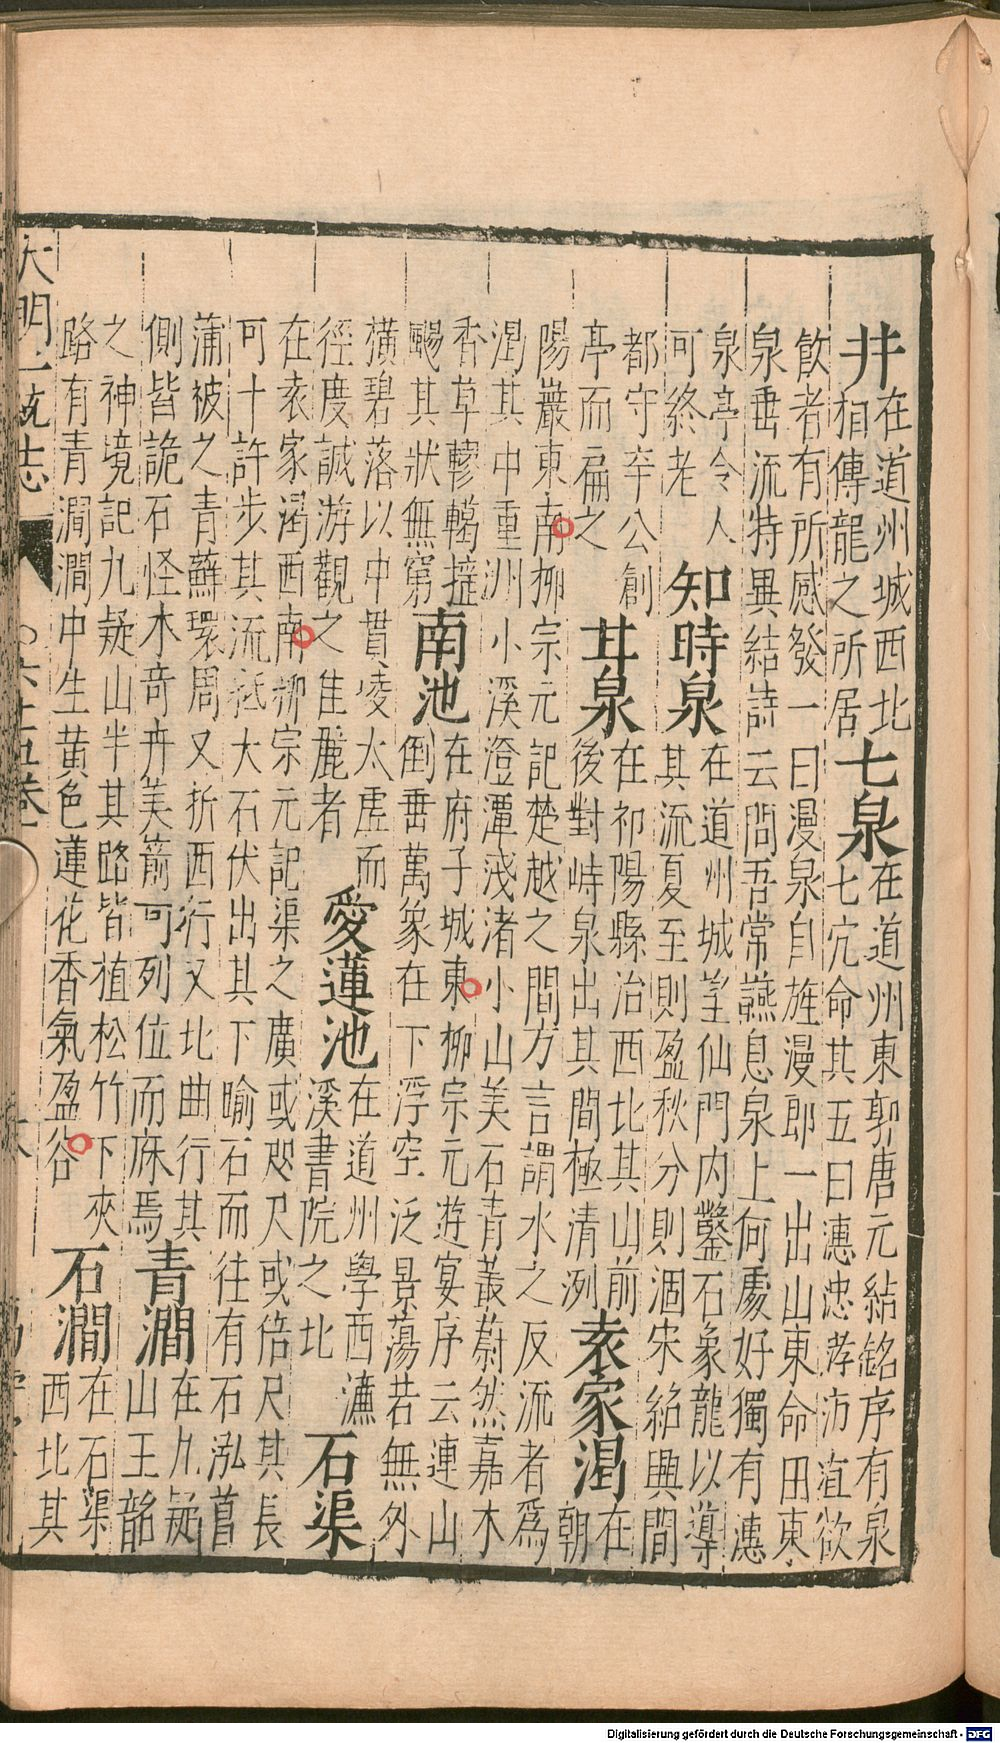 井在道州城西北
相傳龍之所居
七泉在道州東郭唐元結銘序有泉
七穴命其五曰漶㳘涍汸淔欲
飲者有所感發一曰漫泉自旌漫郎一出山東命田東
泉垂流特異結詩云問吾常讌息泉上何處好獨有漶
泉亭令人
可終老
知時泉在道州城望仙門内鑿石象龍以導
其流夏至則盈秋分則涸宋紹興間
都守卒公創
亭而扁之
甘泉在祁陽縣治西北其山前
後對峙泉出其間極清洌
袁家渴在
朝
陽巖東南柳宗元記楚越之間方言謂水之反流者為
渴其中重洲小溪澄潭淺渚小山美石青叢蔚然嘉木
香草轇轕摐
颺其狀無窮
南池在府子城東柳宗元遊宴序云連山
倒垂萬象在下浮空泛景蕩若無外
橫碧落以中貫凌太虛而
徑度誠游觀之佳麗者
愛蓮池在道州學西濂
溪書院之北
石渠
在袁家渴西南柳宗元記渠之廣或咫尺或倍尺其長
可十許步其流抵大石伏出其下踰石而往有石泓菖
蒲被之青蘚環周又折西行又北曲行其
側皆詭石怪木奇卉美箭可列位而庥焉
青澗在九疑
山王韶
之神境記九疑山半其路皆植松竹下夾
路有青澗澗中生黄色蓮花香氣盈谷
石澗在石渠
西北其
大明一統志 六十五卷
Digitalisierung gefördert durch die Deutsche Forschungsgemeinschaft - DFG